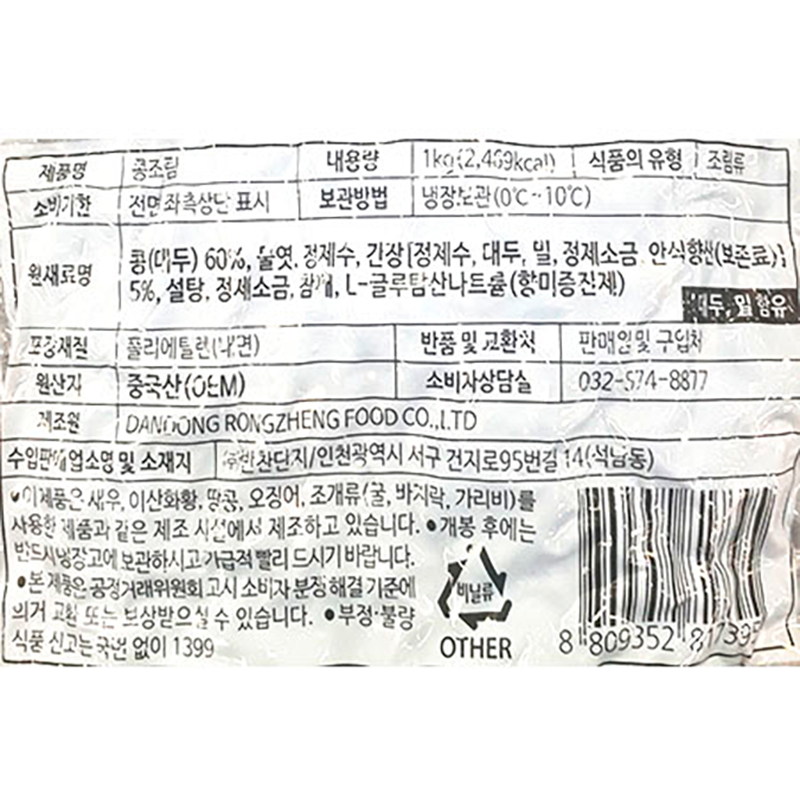 제품명 콩조림 내용량 1kg(2,469kcal) 식품의 유형 조림류
소비기한 전면 좌측상단 표시 보관방법 냉장보관(0℃~10℃)
원재료명 콩(대두) 60%, 물엿, 정제수, 간장[정제수, 대두, 밀, 정제소금, 안식향산(보존료)]
5%, 설탕, 정제소금, 참깨, L-글루탐산나트륨(향미증진제)
대두, 밀 함유
포장재질 폴리에틸렌(내면) 반품 및 교환처 판매원및 구입처
원산지 중국산(OEM) 소비자상담실 032-574-8877
제조원 DANDONG RONGZHENG FOOD CO.,LTD
수입판매업소명 및 소재지 ㈜반찬단지/인천광역시 서구 건지로95번길 14(석남동)
•이제품은 새우, 이산화황, 땅콩, 오징어, 조개류(굴, 바지락, 가리비)를
사용한 제품과 같은 제조 시설에서 제조하고 있습니다. •개봉 후에는
반드시냉장고에 보관하시고 가급적 빨리 드시기 바랍니다.
•본 제품은 공정거래위원회 고시 소비자 분쟁 해결 기준에
의거 교환 또는 보상받으실 수 있습니다. •부정·불량
식품 신고는 국번 없이 1399
비닐류
OTHER
8 809352 817395